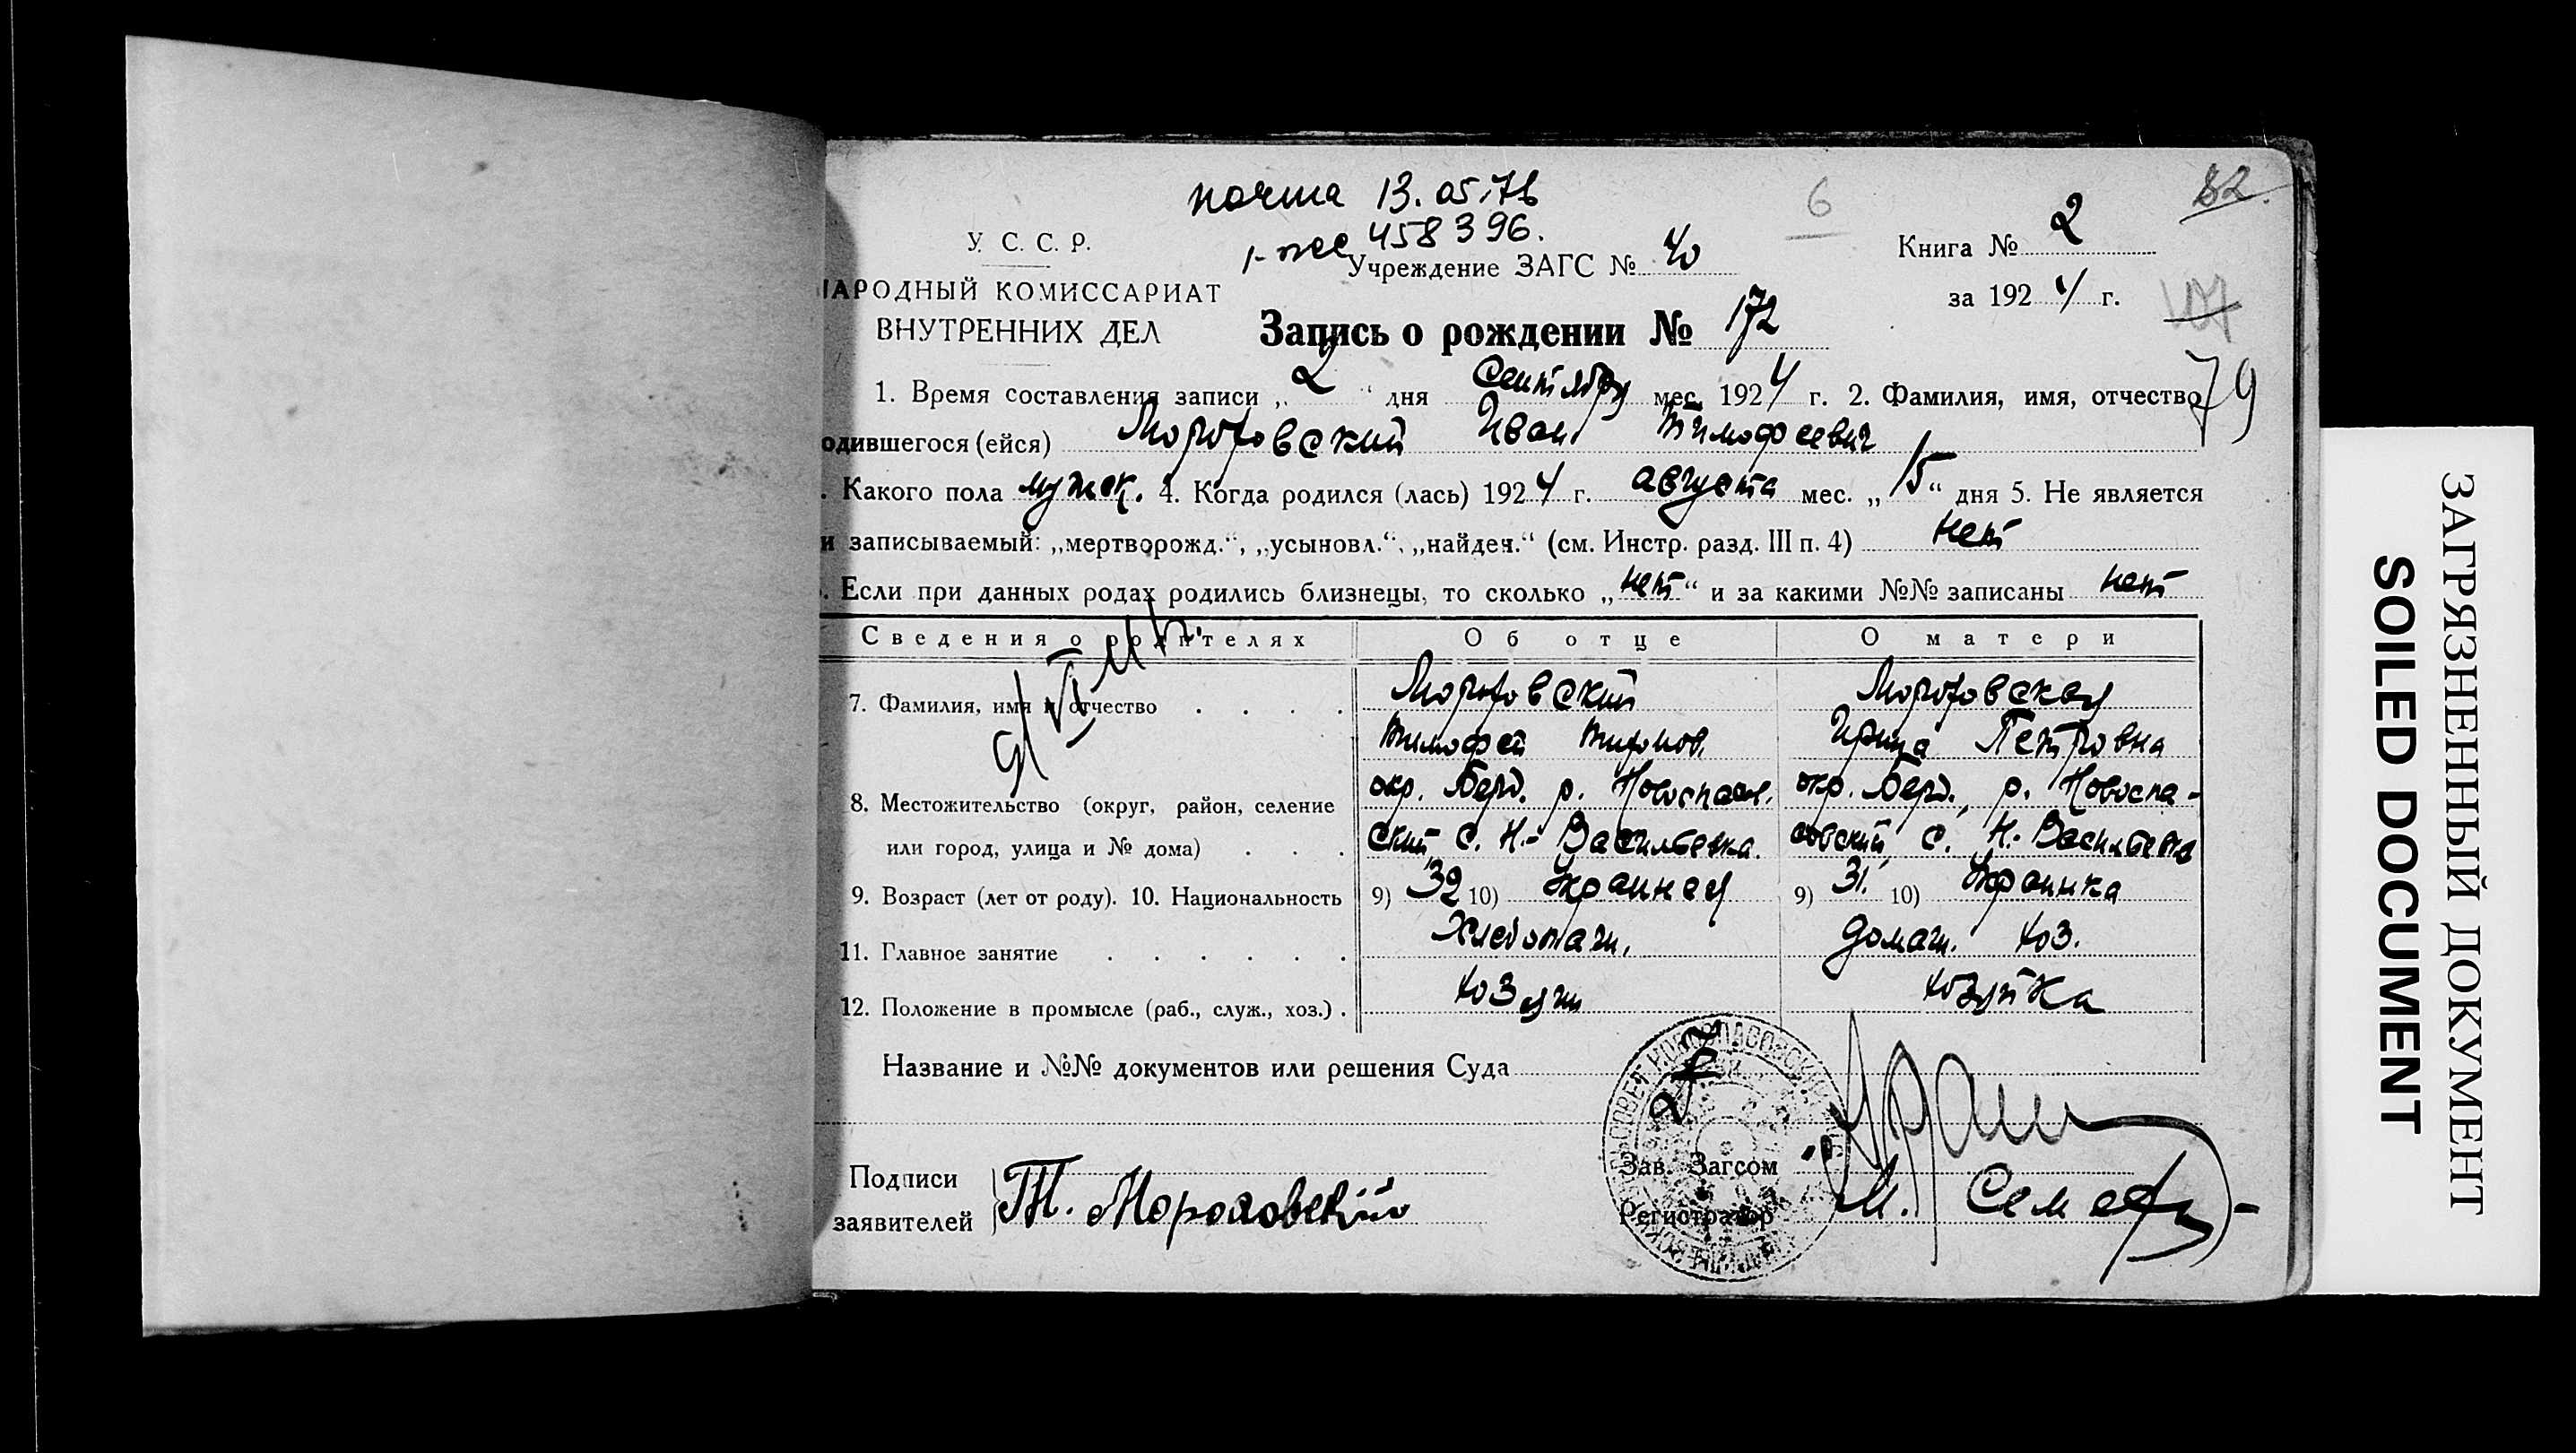 почта 13.05.76
458396.
6
82
У. С. С. Р.
Учреждение ЗАГС № 40
Книга № 2
НАРОДНЫЙ КОМИССАРИАТ
за 1924 г.
ВНУТРЕННИХ ДЕЛ
Запись о рождении № 172
79
1. Время составления записи „2“ дня Сентября мес. 1924 г. 2. Фамилия, имя, отчество
одившегося (ейся) Морозовский Иван Тимофеевич
. Какого пола мужск. 4. Когда родился (лась) 1924 г. августа мес. „15“ дня 5. Не является
и записываемый: „мертворожд.“, „усыновл.“, „найден.“ (см. Инстр. разд. III п. 4) нет
. Если при данных родах родились близнецы, то сколько „нет“ и за какими №№ записаны нет
Сведения о родителях Об отце О матери
7. Фамилия, имя и отчество . . . . Морозовский Морозовская
Тимофей Ирина Петровна
8. Местожительство (округ, район, селение окр. Берд. р. Новоспасов. окр. Берд., р. Новоспа-
или город, улица и № дома) . . . ский, с. Н.-Васильевка. совский, с. Н.-Васильевка
9. Возраст (лет от роду). 10. Национальность 9) 32 10) Украинец 9) 31. 10) Украинка
11. Главное занятие . . . . . . Хлебопаш. домаш. хоз.
12. Положение в промысле (раб., служ., хоз.) . хозяин хозяйка
Название и №№ документов или решения Суда
Подписи
заявителей Т. Морозовский
Зав. Загсом
Регистратор М.
ЗАГРЯЗНЕННЫЙ ДОКУМЕНТ
SOILED DOCUMENT